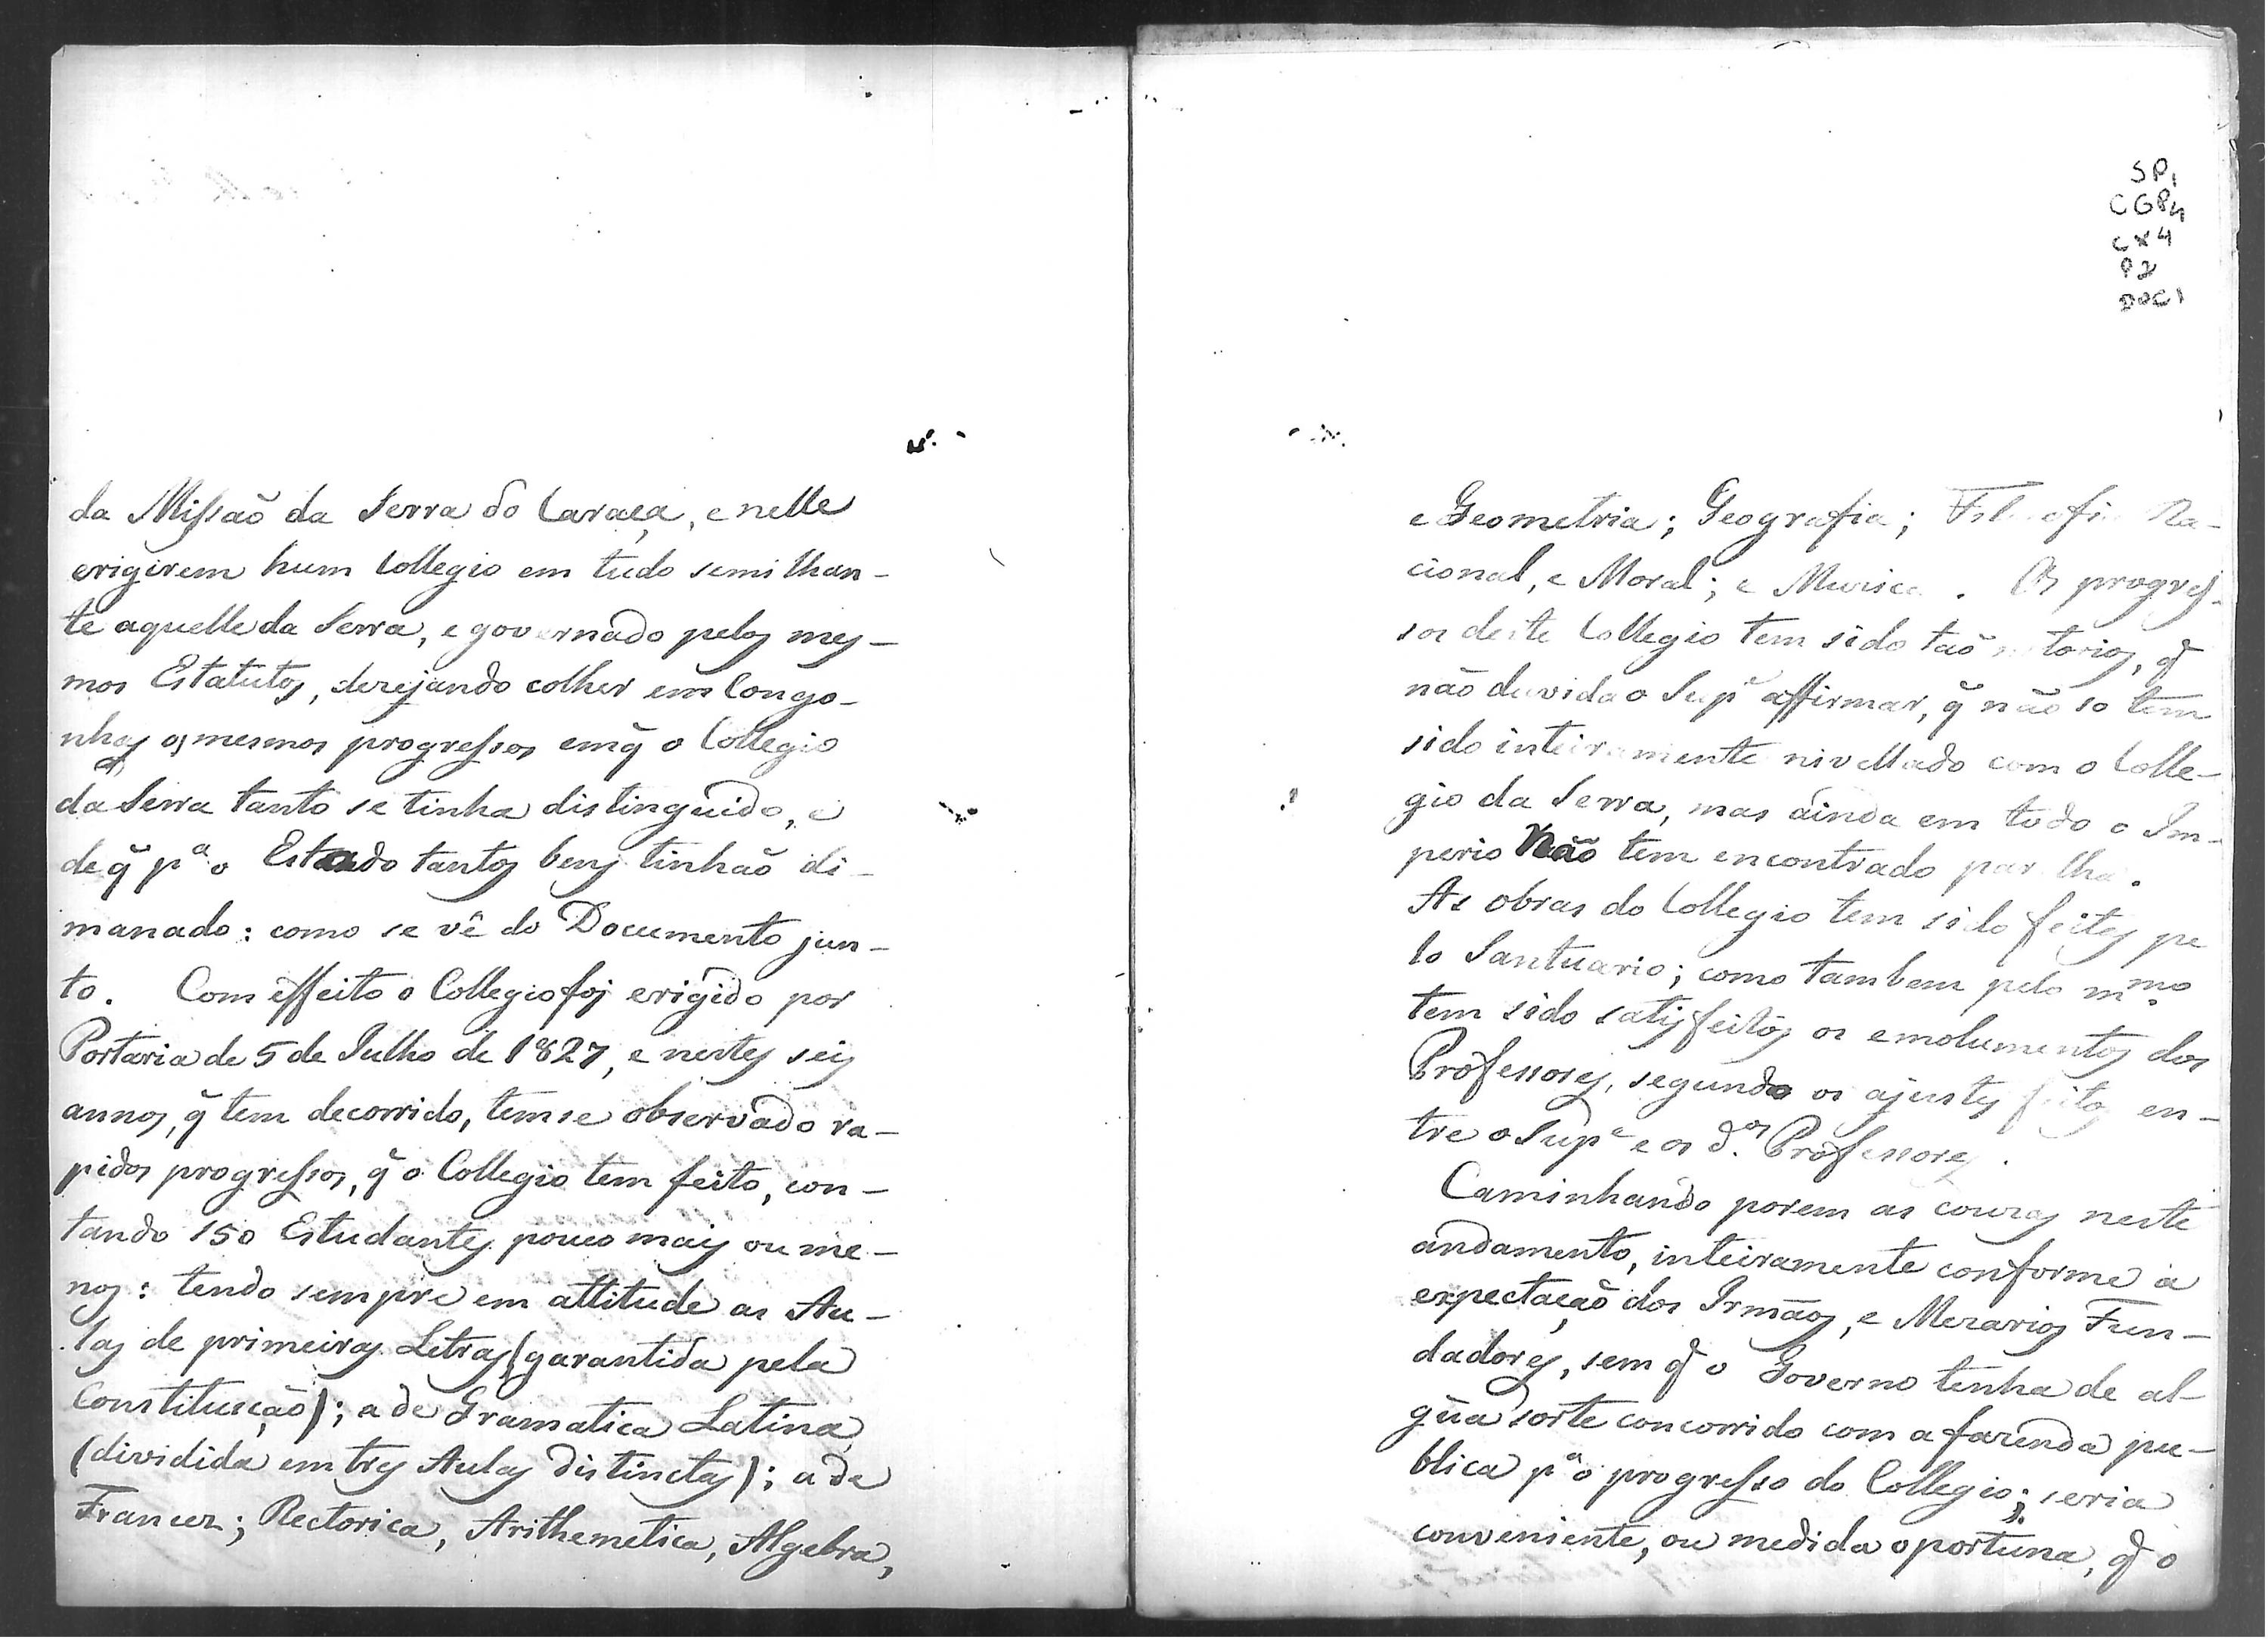 da Missaõ da Serra do Caraça, e nelle
erigirem hum Collegio em tudo similhan-
te aquelle da Serra, e governado pelos mes-
mos Estatutos, dezejando colher em Congo-
nhas os mesmos progressos em q̃ o Collegio
da Serra tanto se tinha distinguido, e
de q̃ pª o Estado tantos bens tinhaõ di-
manado: como se vê do Documento jun-
to. Com effeito o Collegio foi erigido por
Portaria de 5 de Julho de 1827, e nestes seis
annos, q̃ tem decorrido, tem se observado ra-
pidos progressos, q̃ o Collegio tem feito, con-
tando 150 Estudantes pouco mais ou me-
nos: tendo sempre em attitude as Au-
las de primeiras Letras (garantida pela
Constituição); a de Gramatica Latina
(dividida em tres Aulas distinctas); a de
Francez; Rectorica, Arithemetica, Algebra,
SP1
CGP4
CX4
P2
DOC1
e Geometria; Geografia; Filosofia Ra-
cional, e Moral; e Muzica. Os progres-
sos deste Collegio tem sido taõ notorios, q̃
não duvida o Supᵉ affirmar, q̃ não so tem
sido inteiramente nivellado com o Colle-
gio da Serra, mas ainda em todo o Im-
perio Não tem encontrado parelha.
As obras do Collegio tem sido feitas pe
lo Santuario; como tambem pelo mᵐᵒ
tem sido satisfeitos os emolumentos dos
Professores, segundo os ajustes feitos en-
tre o Supᵉ e os d.ᵒˢ Professores.
Caminhando porem as couzas neste
andamento, inteiramente conforme a
expectação dos Irmãos, e Mezarios Fun-
dadores, sem q̃ o Governo tenha de al-
gũa sorte concorrido com a fazenda pu-
blica pª o progresso do Collegio; seria
conveniente, ou medida oportuna, q̃ o